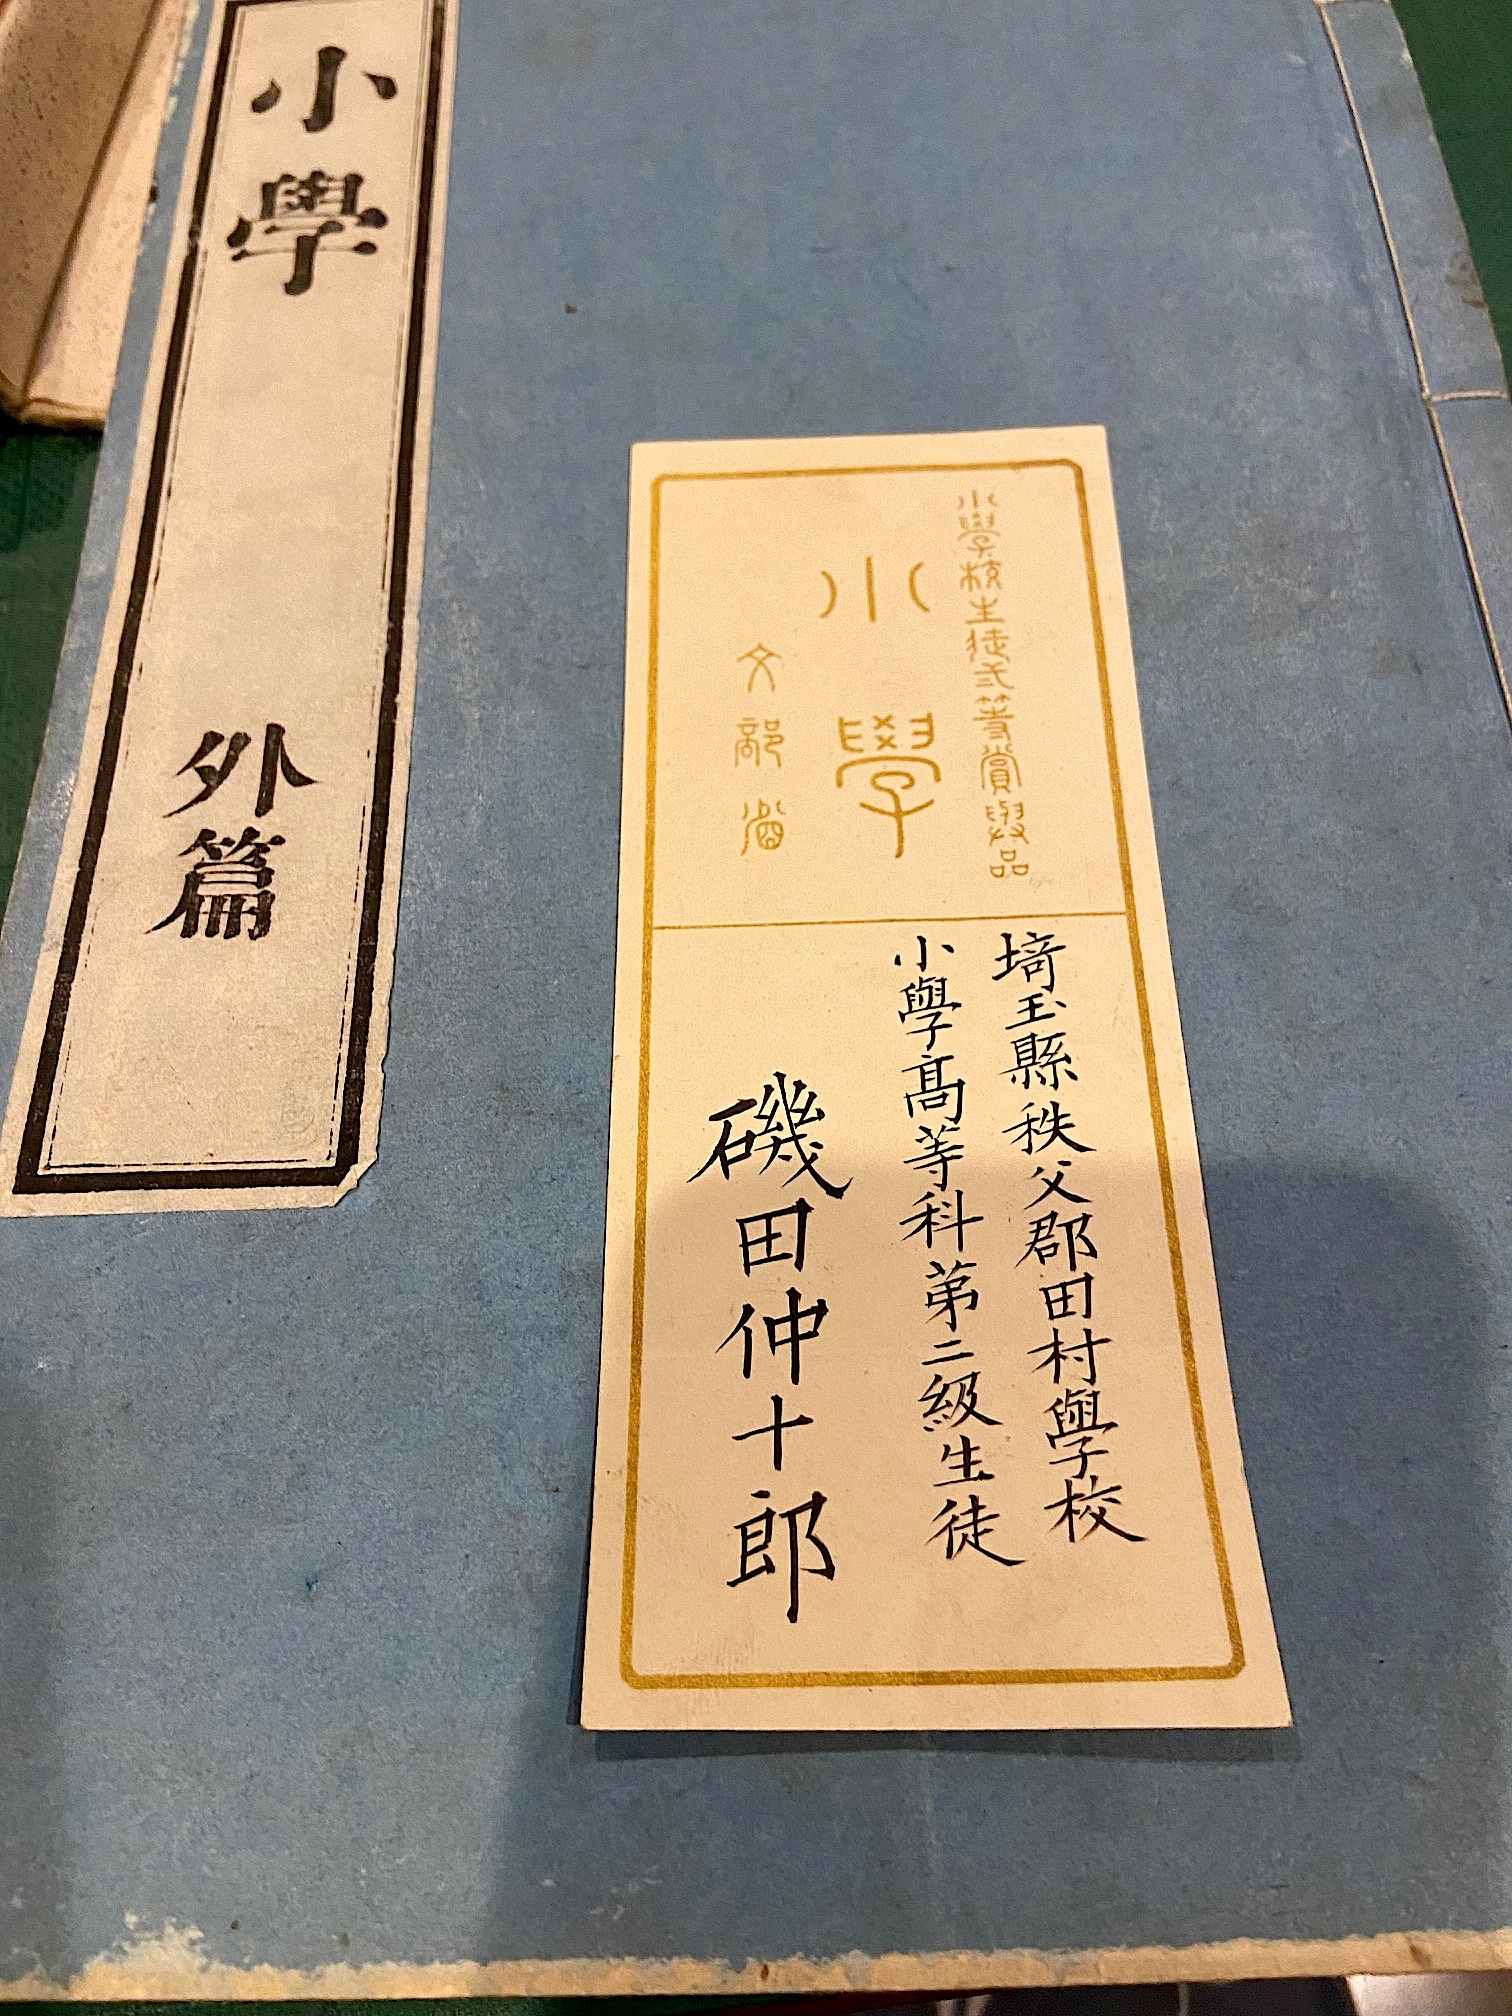 小學校生徒弐等賞與品
小學
文部省
埼玉縣秩父郡田村學校
小學高等科第二級生徒
磯田仲十郎
小學 外篇